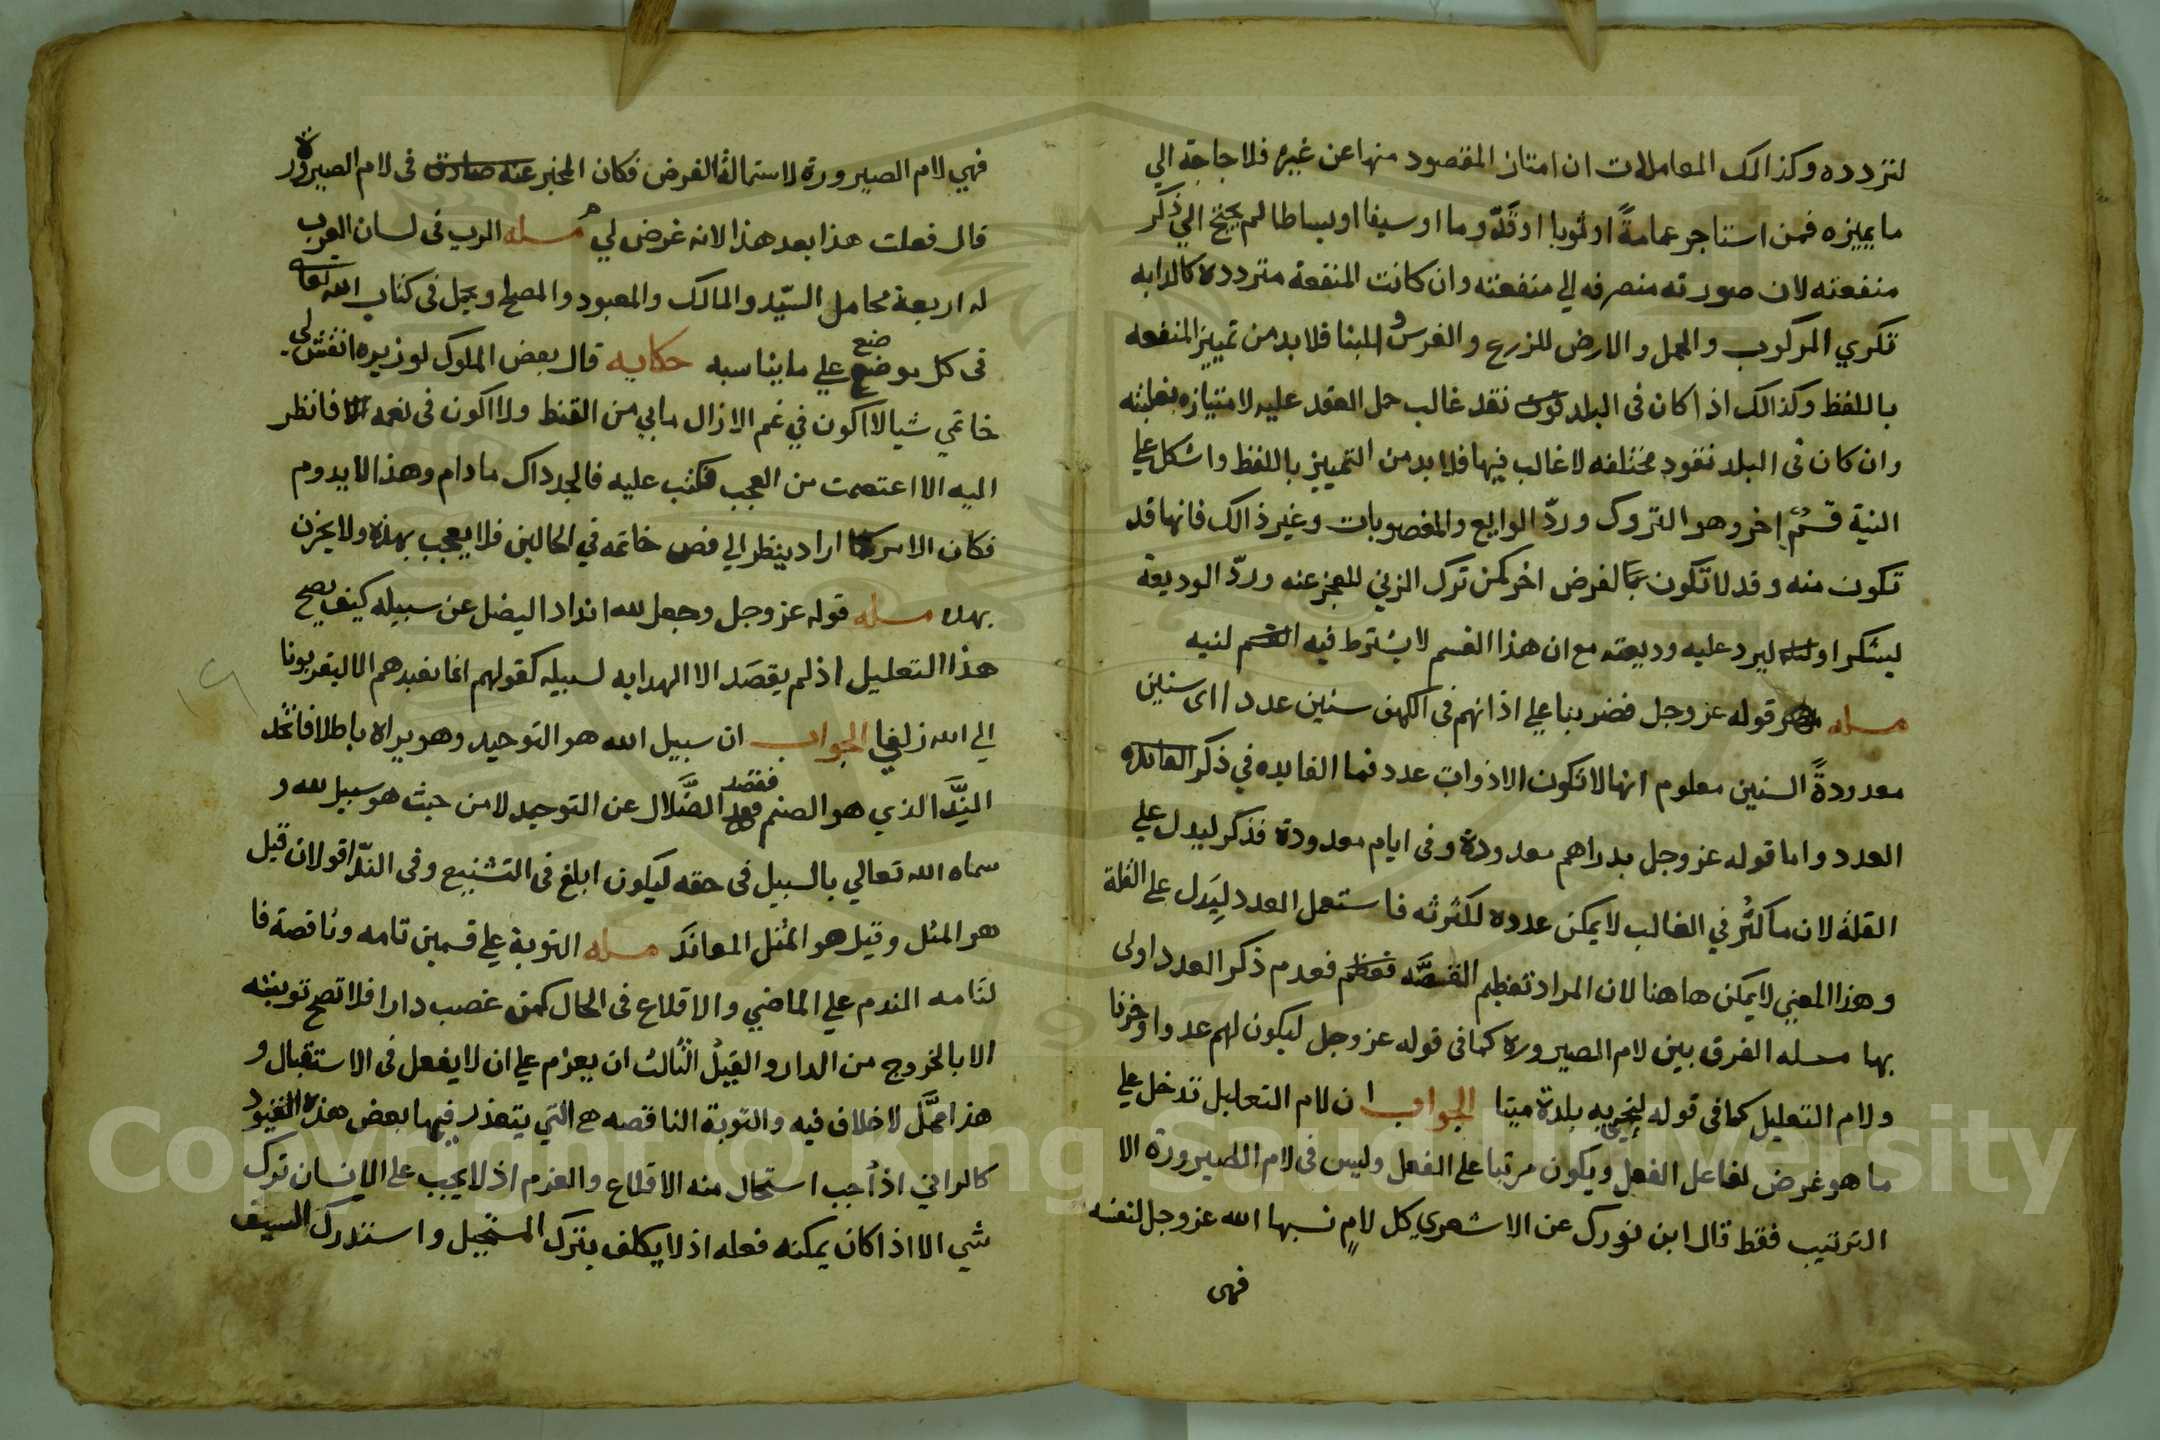 لتردده وكذالك المعاملات ان امتاز المقصود منها عن غيره فلا حاجة الي
ما يميزه فمن استاجر عمامةً او ثوبا او قدّوما او سيفا او بساطا لم يحتج الي ذكر
منفعته لان صورته منصرفه الي منفعته وان كانت المنفعة متردده كالدابه
تكري المركوب والحمل والارض للزرع والغرس وللبنا فلا بد من تمييز المنفعه
باللفظ وكذالك اذا كان في البلد نقد غالب حمل العقد عليه لامتيازه بغلبته
وان كان في البلد نقود مختلفه لا غالب فيها فلا بد من التمييز باللفظ واشكل علي
النية قسمٌ اخر وهو التروك وردّ الودايع والمغصوبات وغير ذالك فانها قد
تكون منه وقد لا تكون لغرض اخر كمن ترك الزني للعجز عنه وردّ الوديعة
ليشكر او ليرد عليه وديعته مع ان هذا القسم لا يشترط فيه لنيه
مسله قوله عز وجل فضربنا علي اذانهم في الكهف سنين عددا اي سنين
معدودةً السنين معلوم انها لا تكون الا ذوات عدد فما الفايده في ذكر
العدد واما قوله عز وجل بدراهم معدودة وفي ايام معدودة فذكر ليدل علي
القلة لان ما كثر في الغالب لا يمكن عدده لكثرته فاستعمل العدد ليدل علي القلة
وهذا المعني لا يمكن هاهنا لان المراد تعظيم القصّه فعدم ذكر العدد اولي
بها مسله الفرق بين لام الصيروره كما في قوله عز وجل ليكون لهم عدوا وحزنا
ولام التعليل كما في قوله لنحيي به بلدة ميتا الجواب ان لام التعليل تدخل علي
ما هو غرض لفاعل الفعل ويكون مرتبا علي الفعل وليس في لام الصيرورة الا
الترتيب فقط قال ابن فورك عن الاشعري كل لامٍ نسبها الله عز وجل لنفسه
فهي
فهي لام الصيرورة لاستحالة الغرض فكان المخبر في لام الصيرورة
قال فعلت هذا بعد هذا لا انه غرض لي مسله الرب في لسان العرب
له اربعة محامل السيّد والمالك والمعبود والمصلح ويحمل في كتاب الله تعالي
في كل موضع علي ما يناسبه حكايه قال بعض الملوك لوزيره انقش لي
خاتمي شيا لا اكون في غم الا زال ما بي من القنط ولا اكون في نعمه فانظر
اليه الا اعتصمت من العجب فكتب عليه فالجد ذاك ما دام وهذا لا يدوم
فكان الامر اراد ينظر الي فص خاتمه في الحالين فلا يعجب بهذه ولا يحزن
بهذه مسله قوله عز وجل وجعل لله اندادا ليضل عن سبيله كيف يصح
هذا التعليل اذ لم يقصَد الا الهدايه لسبيله كقولهم انما نعبدهم الا ليقربونا
الي الله زلفي الجواب ان سبيل الله هو التوحيد وهو يراه باطلا فاتخذ
النِدَّ الذي هو الصنم فقصد الضَّلال عن التوحيد لا من حيث هو سبيل لله و
سماه الله تعالي بالسبيل في حقه ليكون ابلغ في التشنيع وفي الندّ اقولان قيل
هو المثل وقيل هو المثل المعاند مسله التوبة علي قسمين تامه وناقصة فا
لتامه الندم علي الماضي والاقلاع في الحال كمن غصب دارا فلا تصح توبته
الا بالخروج من الدار والقيدُ الثالث ان يعزم علي ان لا يفعل في الاستقبال و
هذا محلّ لا خلاف فيه والتوبة الناقصه هي التي يتعذر فيها بعض هذه القيود
كالزاني اذ اُجب استحال منه الاقلاع والعزم اذ لا يجب علي الانسان ترك
شي الا اذا كان يمكنه فعله اذ لا يكلف بترك المستحيل واستدرك السيف
١٩
Copyright © King Saud University